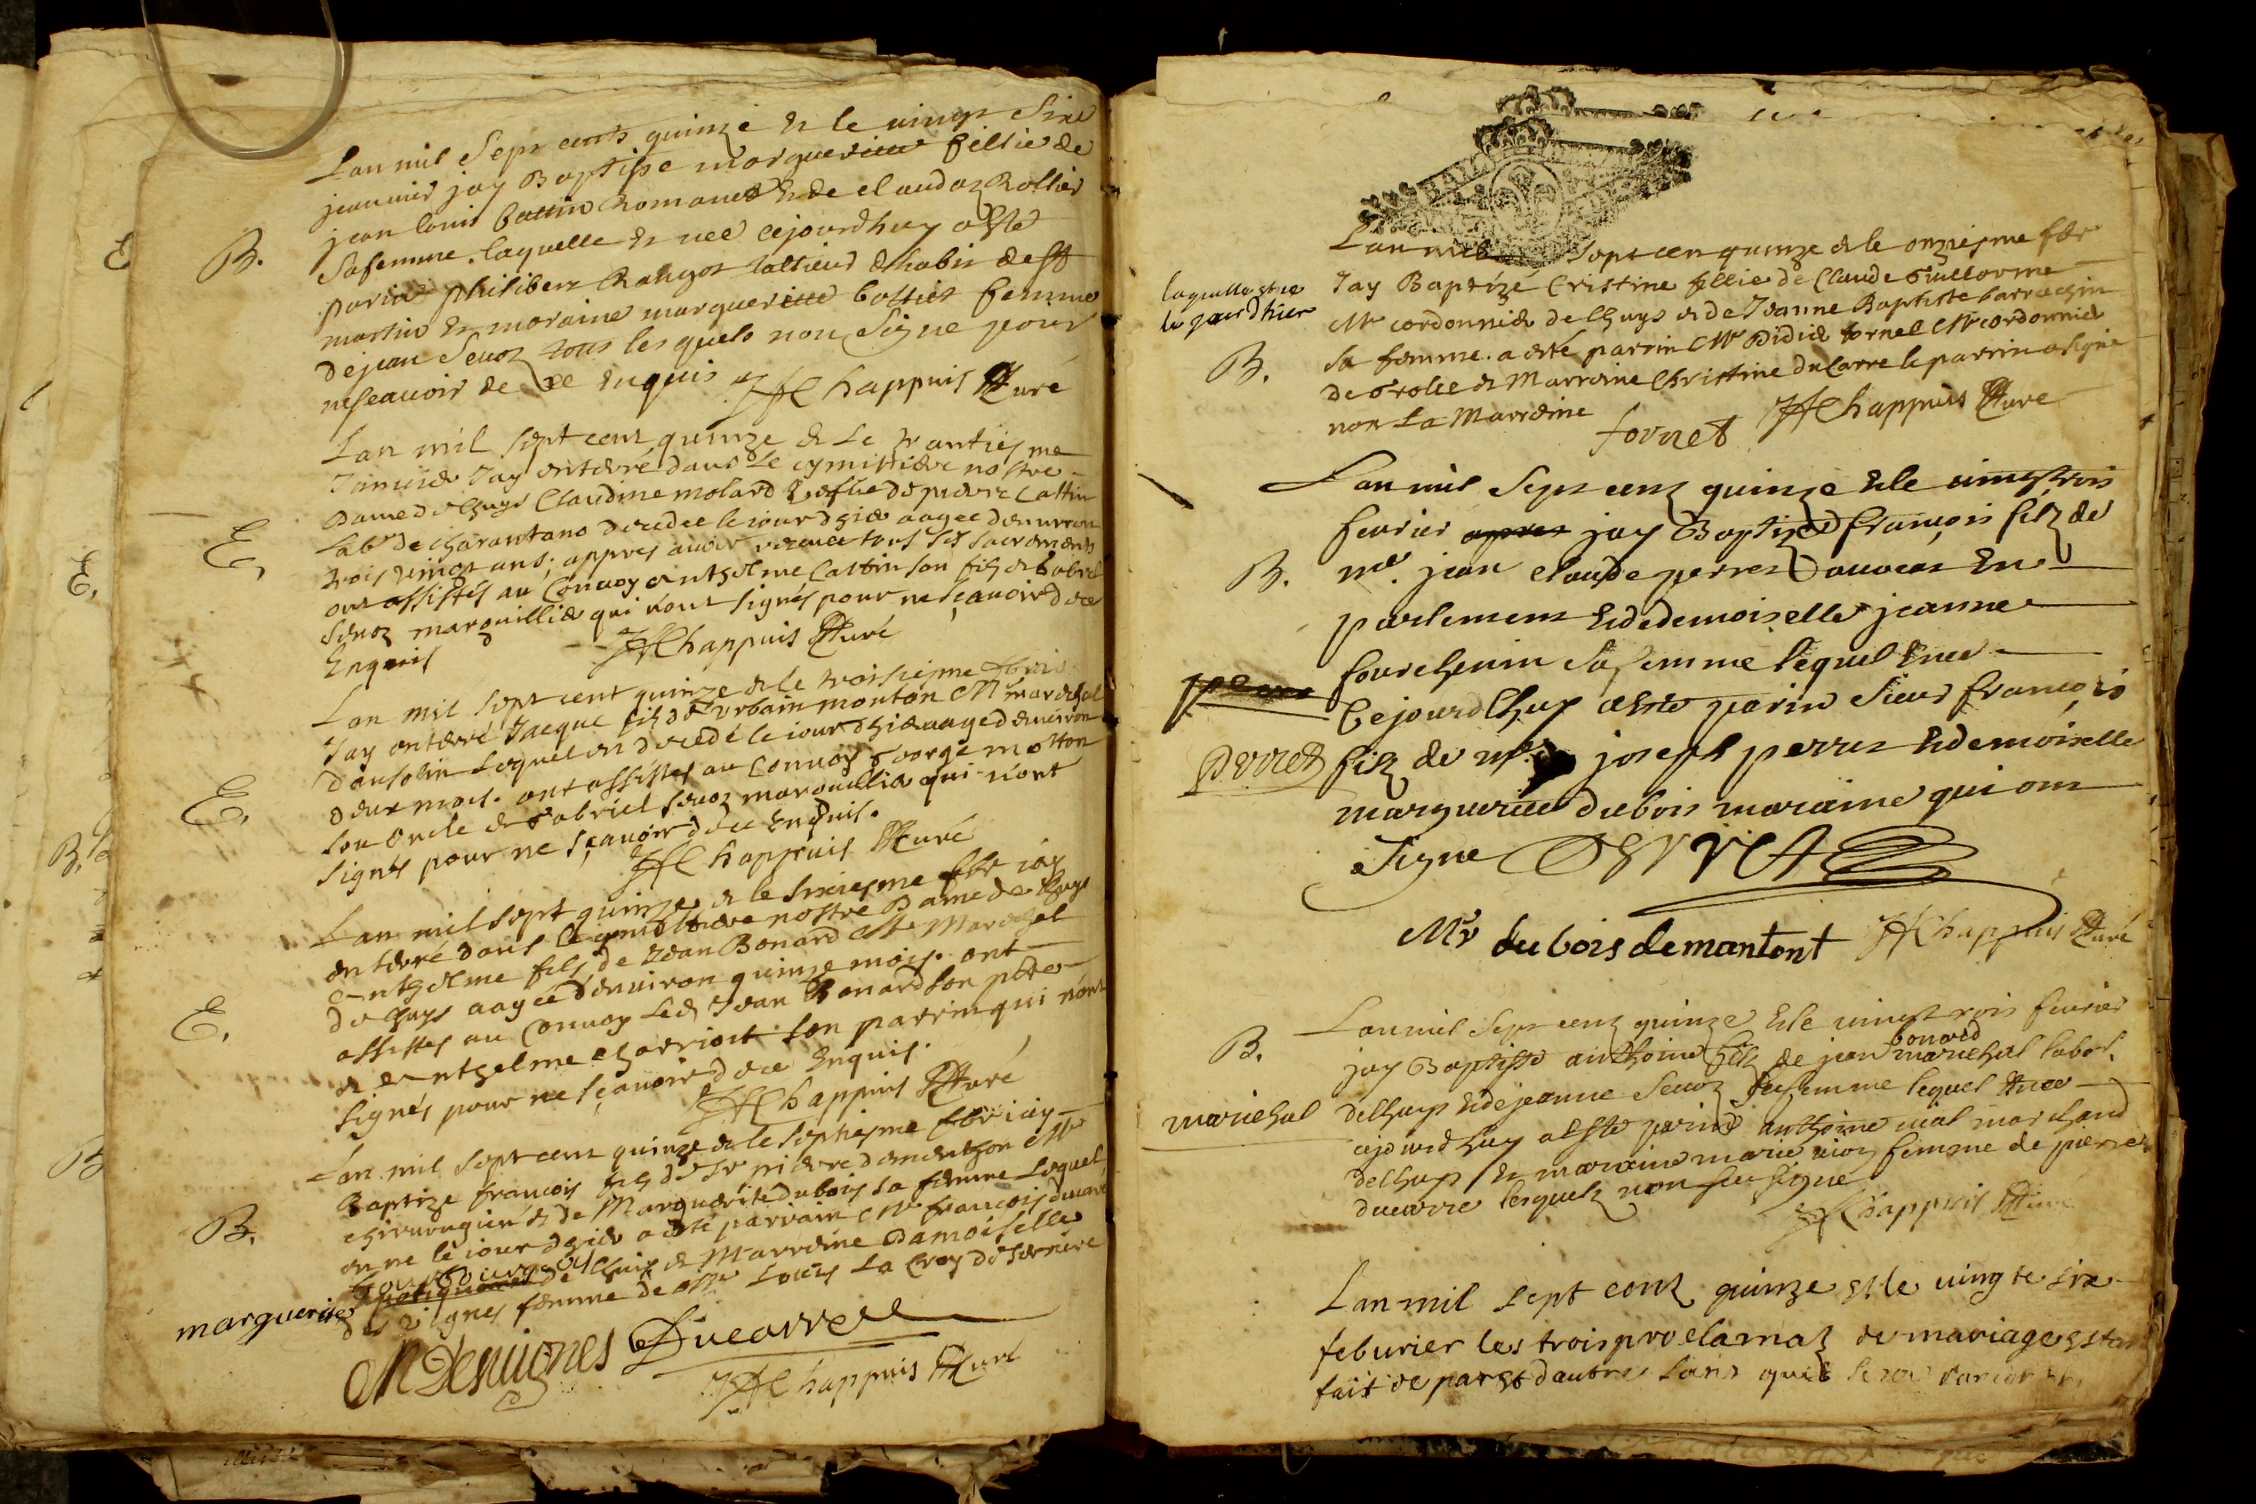 Lan mil Sept cents quinze & le vingt Sixe
jeanuier jay Baptisse margueritte fillie de
jean louis Cattin Romanet & de claudaz Rollier
Safemme. laquelle & nee cejourdhuy aeste
parin philibert Rangot tallieur dhabis de st
martin & moraine marguerite Cottier femme
de jean Seuoz tous lesquels non Signe pour
nescauoir de ce Enquis JFChappuis Curé
B.
Lan mil sept cent quinze & le trantiesme
Januier Jay enterré dans le cymittiere nostre
Dame de lhuys Claudine molard vefue de pierre Cattin
Labr de charantano decedee le iour dhier aagee denuiron
trois vingt ans; appres auoir receue tous ses sacrements
ont assistés au Conuoy anthelme Cattin son filz & Gabriel
Seuoz marguillier qui n'ont signés pour ne sçauoir de ce
Enquis JFChappuis Curé
E.
Lan mil sept cent quinze & le troisiesme feurier
Jay enterré Jacque filz de urbain monton Mre marechal
dansolin Lequel est decedé le iour dhier aagé denuiron
deux mois. ont assistés au Conuoy George motton
son oncle & Gabriel Seuoz marguillier qui n'ont
signés pour ne sçauoir de ce Enquis.
JFChappuis Curé
E.
Lan mil sept quinze & le sixiesme febr iay
enterré dans le cymittiere nostre Dame de lhuys
anthelme filz de Jean Bonard Mre Marechal
de lhuys aagee denuiron quinze mois. ont
assistés au Conuoy Led Jean Bonard son pere
& anthelme charriont son parrin qui n'ont
signés pour ne sçauoir de ce Enquis.
JFChappuis Curé
E.
Lan mil sept cent quinze & le septiesme febr iay
Baptize francois filz de Sr pierre demanthon Mre
chirurgien & de Marguerite dubois sa femme Lequel
on ne le iour dhier a esté parrain Mre francois ducarre
bourgeois de lhuis & Marreine Damoiselle
marguerite des vignes femme de Mre Louis La Croy de Seruere
MDesuignes Ducarre
JFChappuis Curé
B.
Lan mil Sept cen quinze & le onziesme febr
Jay Baptizé Cristine fillie de Claude Guillerme
laquelle est nee
le jourdhier
Mre cordonnier de lhuys & de Jeanne Baptiste barrachin
sa femme. a esté parrin Mre Didier fornel Mre cordonnier
B.
de Grolee & Marreine Christine duCarre le parrin a signé
non La Marreine fornet JFChappuis Curé
Lan mil Sept cent quinze & le vingttrois
feurier jay Baptizé françois filz de
B.
me. jean claude perret auocat En
parlement & de demoiselle jeanne
fourchenin Safemme lequel & nee
Cejourdhuy aeste parin Sieur françois
perret
filz de me. joseph perret & demoiselle
marguerite dubois maraine qui ont
Signe PERRET
Mr dubois demantont JFChappuis Curé
Lan mil Sept cent quinze & le vingt trois feurier
B.
jay Baptisse anthoine filz de jean bonard marichal labor.
marichal
delhuys & de jeanne Seuoz safemme lequel & nee
cejourdhuy aeste parin anthoine vial marchand
delhuys & maraine marie nioz femme de pierre
ducarre lesquels non sceu Signe
JFChappuis Curé
Lan mil sept cent quinze & le vingte six
feburier les trois proclamaz de mariage estan
fait de part & dautres sans quil